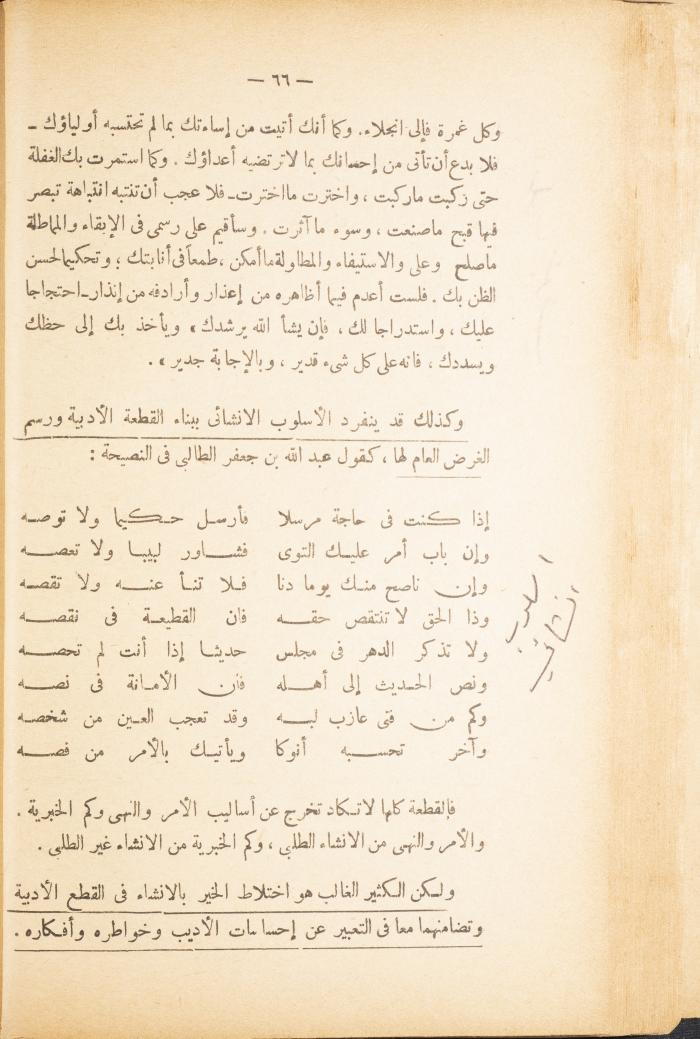 — ٦٦ —
وكل غمرة فإلى انجلاء. وكما أنك أتيت من إساءتك بما لم تحتسبه أولياؤك ـ
فلا بدع أن تأتى من إحسانك بما لا ترتضيه أعداؤك . وكما استمرت بك الغفلة
حتى ركبت ما ركبت ، واخترت ما اخترت ـ فلا عجب أن تنتبه انتباهة تبصر
فيها قبح ماصنعت ، وسوء ما آثرت . وسأقيم على رسمى فى الإبقاء والمماطلة
ماصلح وعلى والاستيفاء والمطاولة ما أمكن ، طمعاً فى أنابتك ؛ وتحكيما لحسن
الظن بك . فلست أعدم فيما أظاهره من إعذار وأرادفه من إنذار ـ احتجاجا
عليك ، واستدراجا لك ، فإن يشأ الله يرشدك ، ويأخذ بك إلى حظك
ويسددك ، فانه على كل شىء قدير ، وبالإجابة جدير » .
وكذلك قد ينفرد الأسلوب الانشائى ببناء القطعة الأدبية ورسم
الغرض العام لها ، كقول عبد الله بن جعفر الطالبى فى النصيحة :
إذا كنت فى حاجة مرسلا فأرسل حكيما ولا توصه
وإن باب أمر عليك التوى فشاور لبيبا ولا تعصه
وإن ناصح منك يوما دنا فلا تنأ عنه ولا تقصه
وذا الحق لا تنتقص حقه فان القطيعة فى نقصه
ولا تذكر الدهر فى مجلس حديثا إذا أنت لم تحصه
ونص الحديث إلى أهله فان الأمانة فى نصه
وكم من فتى عازب لبه وقد تعجب العين من شخصه
وآخر تحسبه أنوكا ويأتيك بالأمر من فصه
أسلوب
إنشائي
فالقطعة كلها لا تكاد تخرج عن أساليب الأمر والنهى وكم الخبرية .
والأمر والنهى من الانشاء الطلبى ، وكم الخبرية من الانشاء غير الطلبى .
ولكن الكثير الغالب هو اختلاط الخبر بالانشاء فى القطع الأدبية
وتضامنهما معا فى التعبير عن إحساسات الأديب وخواطره وأفكاره .